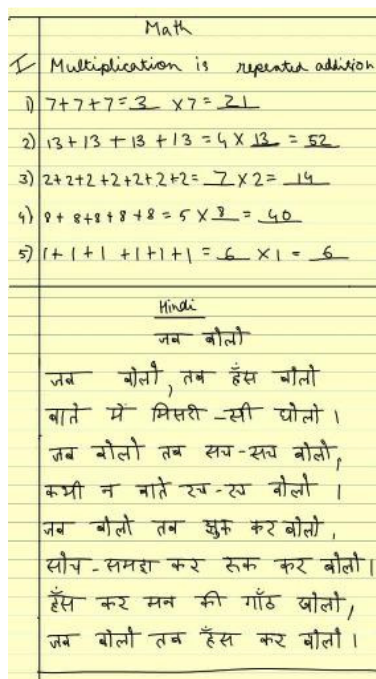 Math
I Multiplication is repeated addition
1) 7+7+7=3 x7=21
2) 13+13+13+13=4x13=52
3) 2+2+2+2+2+2+2=7x2=14
4) 8+8+8+8+8=5x8=40
5) 1+1+1+1+1+1=6x1=6
Hindi
जब बोलो
जब बोलो, तब हँस बोलो
बाते में मिसरी-सी घोलो।
जब बोलो तब सच-सच बोलो,
कभी न बाते रच-रच बोलो।
जब बोलो तब झुक कर बोलो,
सोच-समझ कर रूक कर बोलो।
हँस कर मन की गाँठ खोलो,
जब बोलो तब हँस कर बोलो।